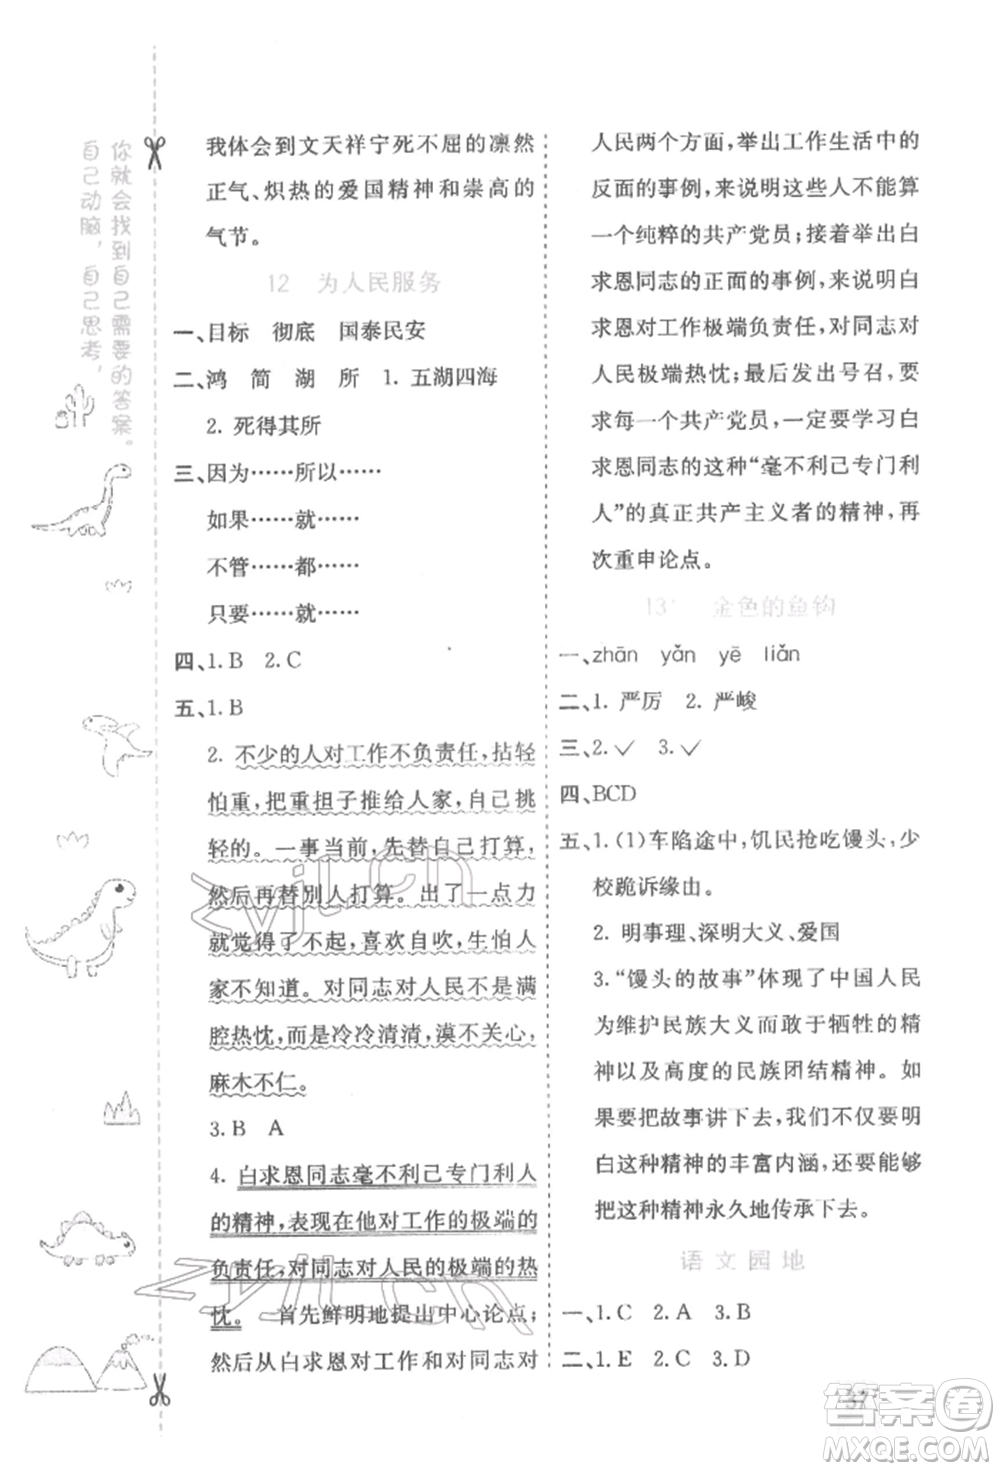 你就会找到自己需要的答案。
自己动脑，自己思考，
我体会到文天祥宁死不屈的凛然
正气、炽热的爱国精神和崇高的
气节。
12 为人民服务
一、目标 彻底 国泰民安
二、鸿 简 湖 所 1. 五湖四海
2. 死得其所
三、因为……所以……
如果……就……
不管……都……
只要……就……
四、1. B 2. C
五、1. B
2. 不少的人对工作不负责任，拈轻
怕重，把重担子推给人家，自己挑
轻的。一事当前，先替自己打算，
然后再替别人打算。出了一点力
就觉得了不起，喜欢自吹，生怕人
家不知道。对同志对人民不是满
腔热忱，而是冷冷清清，漠不关心，
麻木不仁。
3. B A
4. 白求恩同志毫不利己专门利人
的精神，表现在他对工作的极端的
负责任，对同志对人民的极端的热
忱。 首先鲜明地提出中心论点；
然后从白求恩对工作和对同志对
人民两个方面，举出工作生活中的
反面的事例，来说明这些人不能算
一个纯粹的共产党员；接着举出白
求恩同志的正面的事例，来说明白
求恩对工作极端负责任，对同志对
人民极端热忱；最后发出号召，要
求每一个共产党员，一定要学习白
求恩同志的这种“毫不利己专门利
人”的真正共产主义者的精神，再
次重申论点。
13 金色的鱼钩
一、zhān yǎn yē liǎn
二、1. 严厉 2. 严峻
三、2. ✓ 3. ✓
四、BCD
五、1. (1)车陷途中，饥民抢吃馒头，少
校跪诉缘由。
2. 明事理、深明大义、爱国
3. “馒头的故事”体现了中国人民
为维护民族大义而敢于牺牲的精
神以及高度的民族团结精神。如
果要把故事讲下去，我们不仅要明
白这种精神的丰富内涵，还要能够
把这种精神永久地传承下去。
语文园地
一、1. C 2. A 3. B
二、1. E 2. C 3. D
37
答案卷
MXQE.COM
zyjl.cn
zyjl.cn